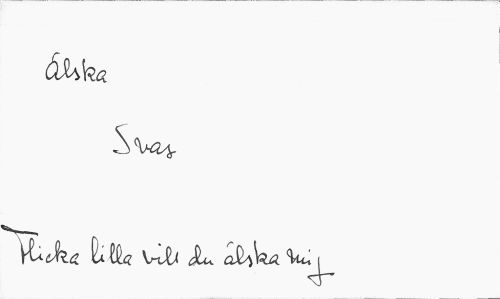 Älska
Svar
Flicka lilla vill du älska mig